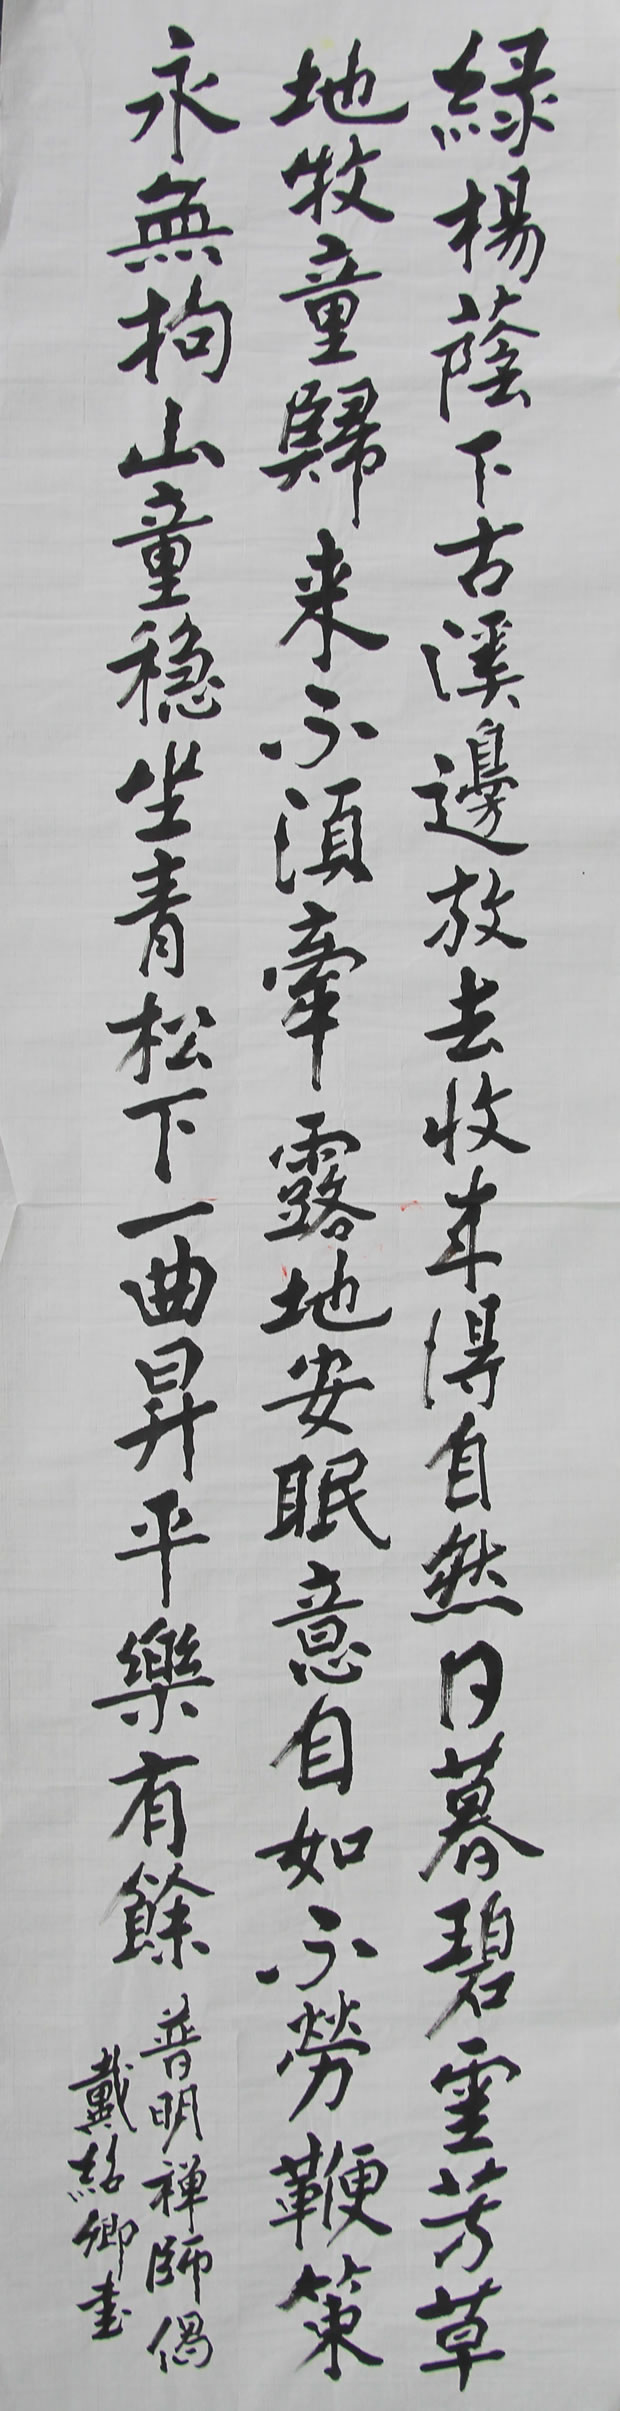 綠楊蔭下古溪邊放去收来得自然日暮碧雲芳草
地牧童歸来不須牽露地安眠意自如不勞鞭策
永無拘山童穩坐青松下一曲昇平樂有餘
普明禅師偈
戴紹卿書